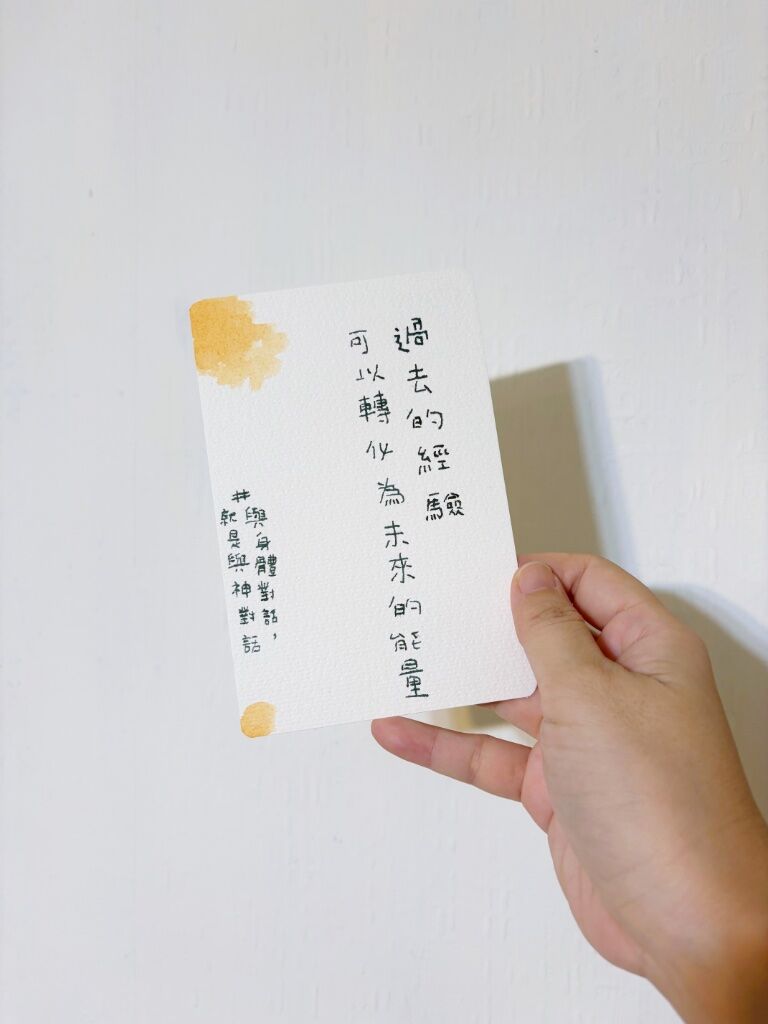 過去的經驗
可以轉化為未來的能量
#與身體對話，
就是與神對話